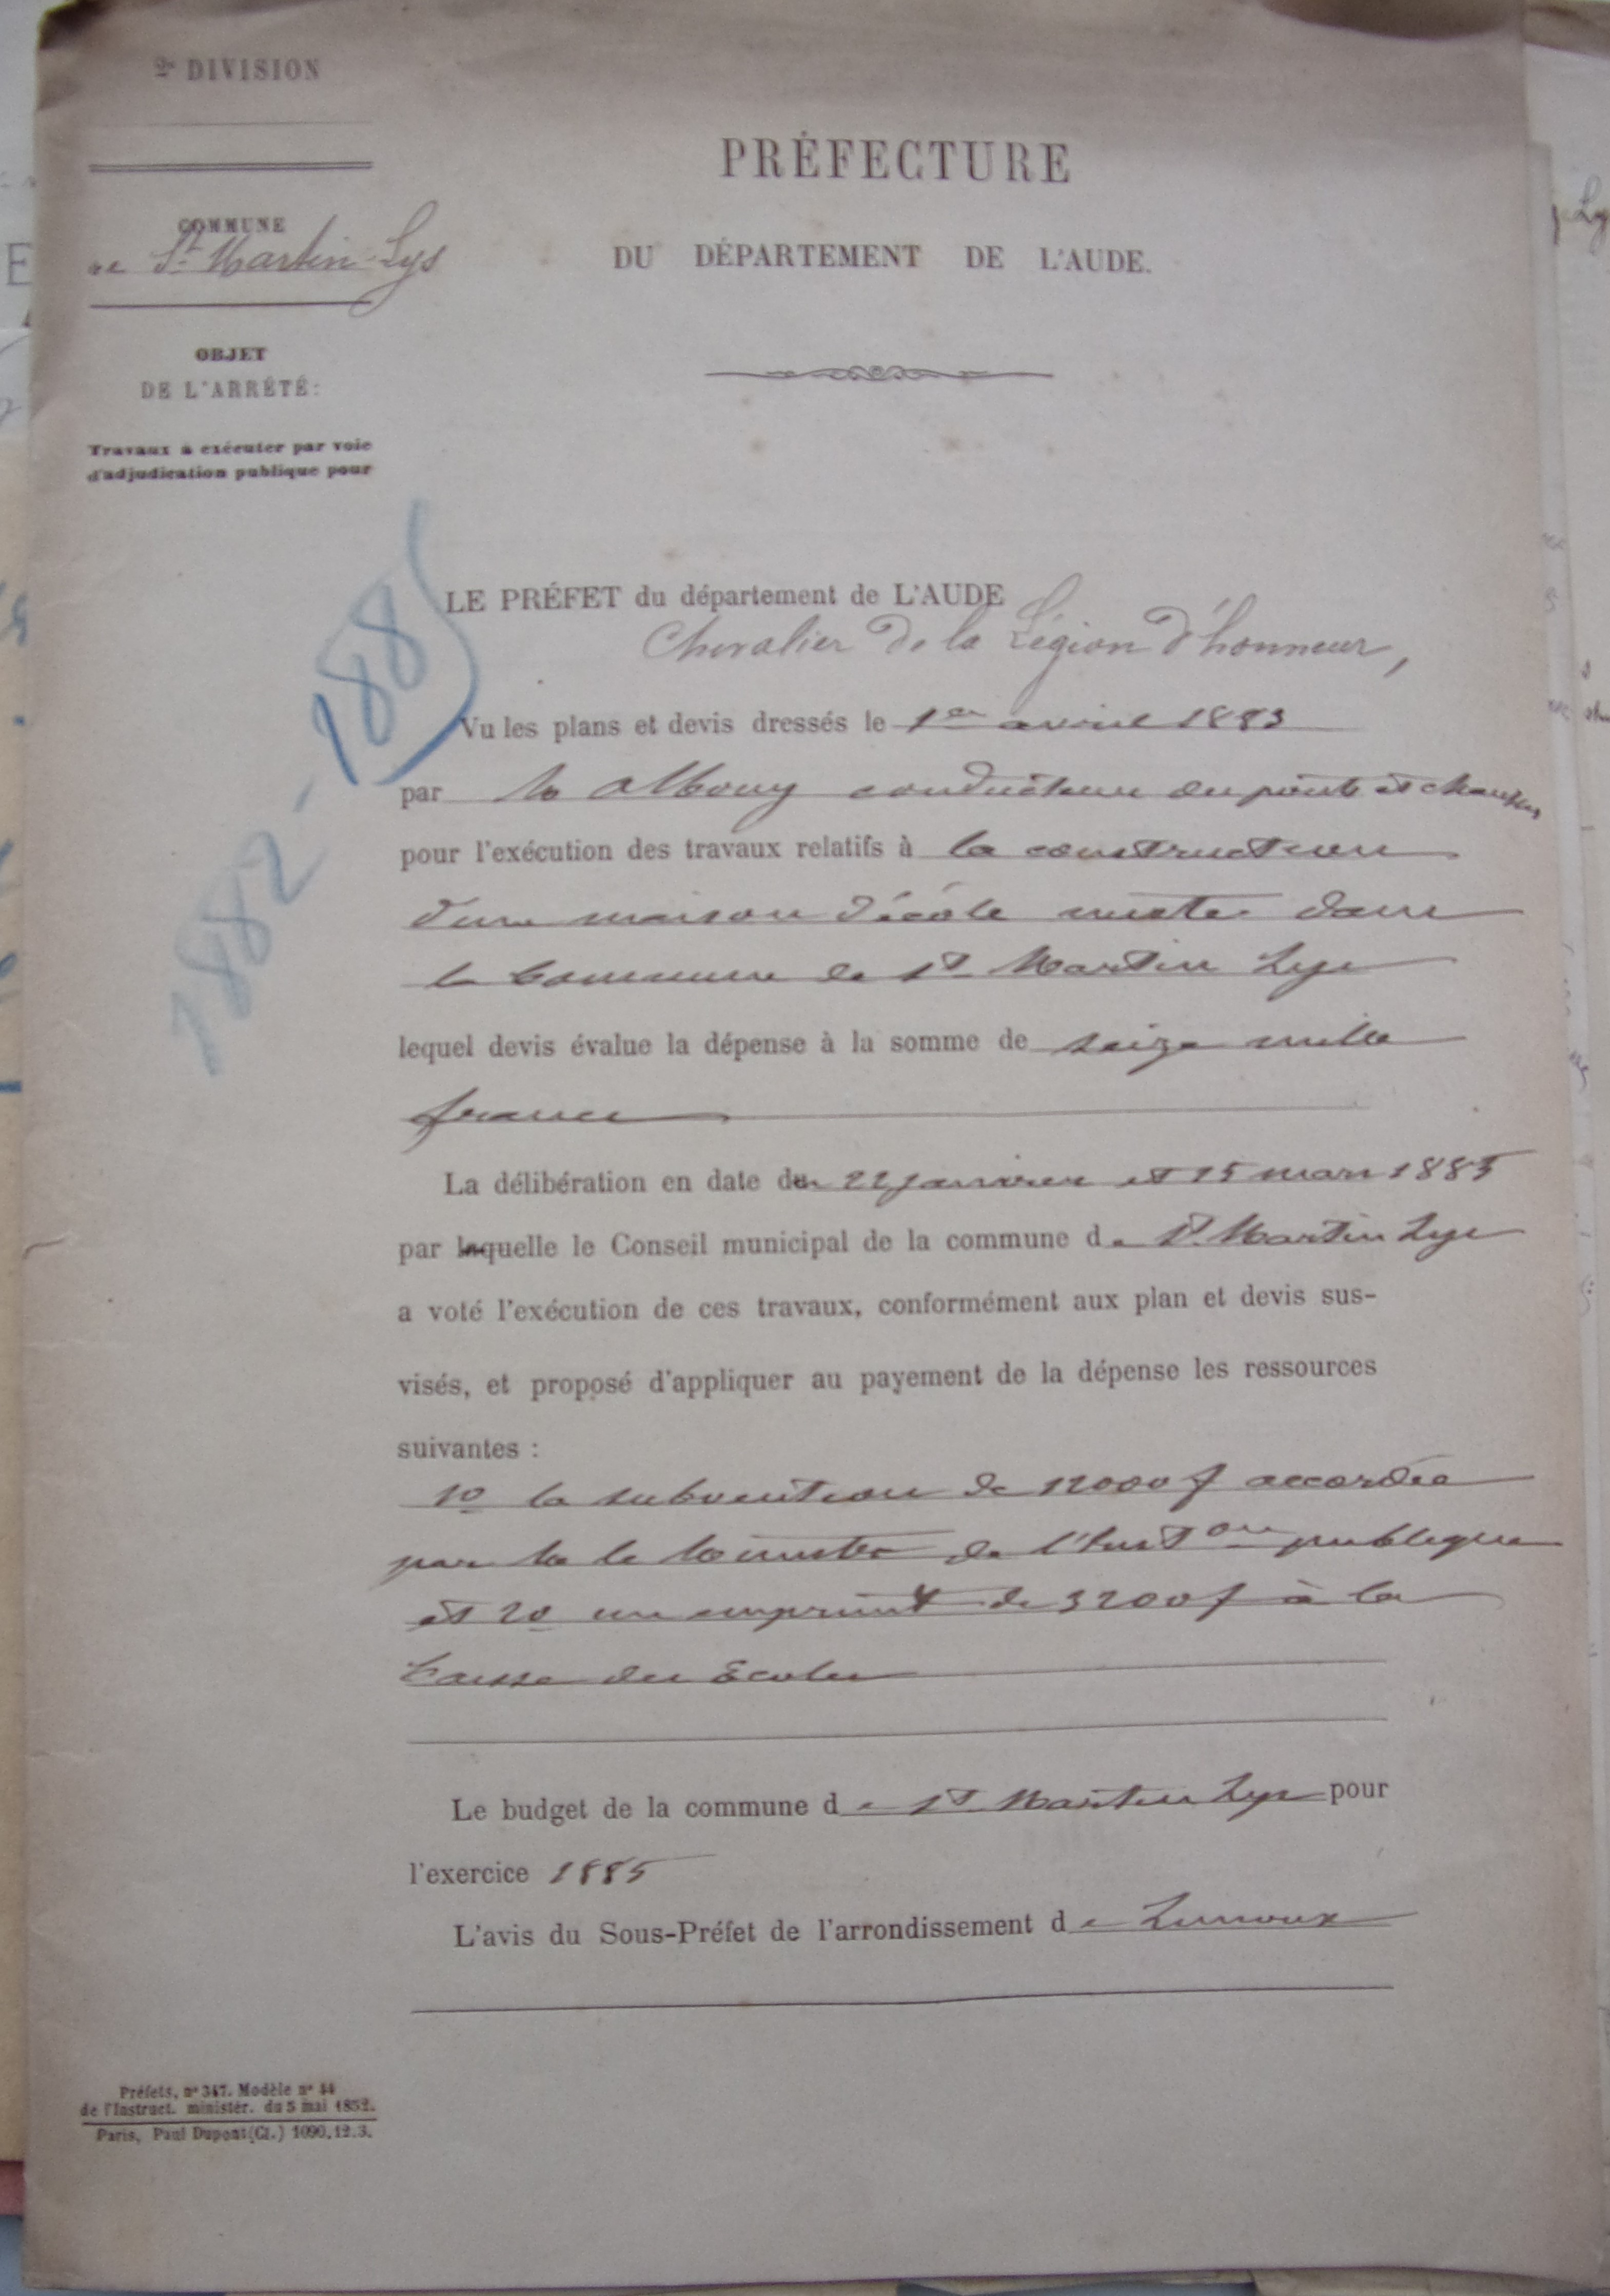 2e DIVISION
COMMUNE
de St Martin-Lys
OBJET
DE L'ARRÊTÉ:
Travaux à exécuter par voie
d'adjudication publique pour
PRÉFECTURE
DU DÉPARTEMENT DE L'AUDE.
1882-188
LE PRÉFET du département de L'AUDE
Chevalier de la Légion d'honneur,
Vu les plans et devis dressés le 1er avril 1883
par M Albouy conducteur des ponts et chaussées
pour l'exécution des travaux relatifs à la construction
d'une maison d'école mixte dans
la Commune de St Martin Lys
lequel devis évalue la dépense à la somme de seize mille
francs
La délibération en date des 22 janvier et 15 mars 1885
par lesquelle le Conseil municipal de la commune de St Martin Lys
a voté l'exécution de ces travaux, conformément aux plan et devis sus-
visés, et proposé d'appliquer au payement de la dépense les ressources
suivantes :
1o la subvention de 12000 f accordée
par M le Ministre de l'Inston publique
et 2o un emprunt de 3200 f à la
Caisse des Ecoles
Le budget de la commune de St Martin Lys pour
l'exercice 1885
L'avis du Sous-Préfet de l'arrondissement de Limoux
Préfets, no 347. Modèle no 44
de l'Instruct. ministér. du 5 mai 1852.
Paris, Paul Dupont (Cl.) 1090.12.3.